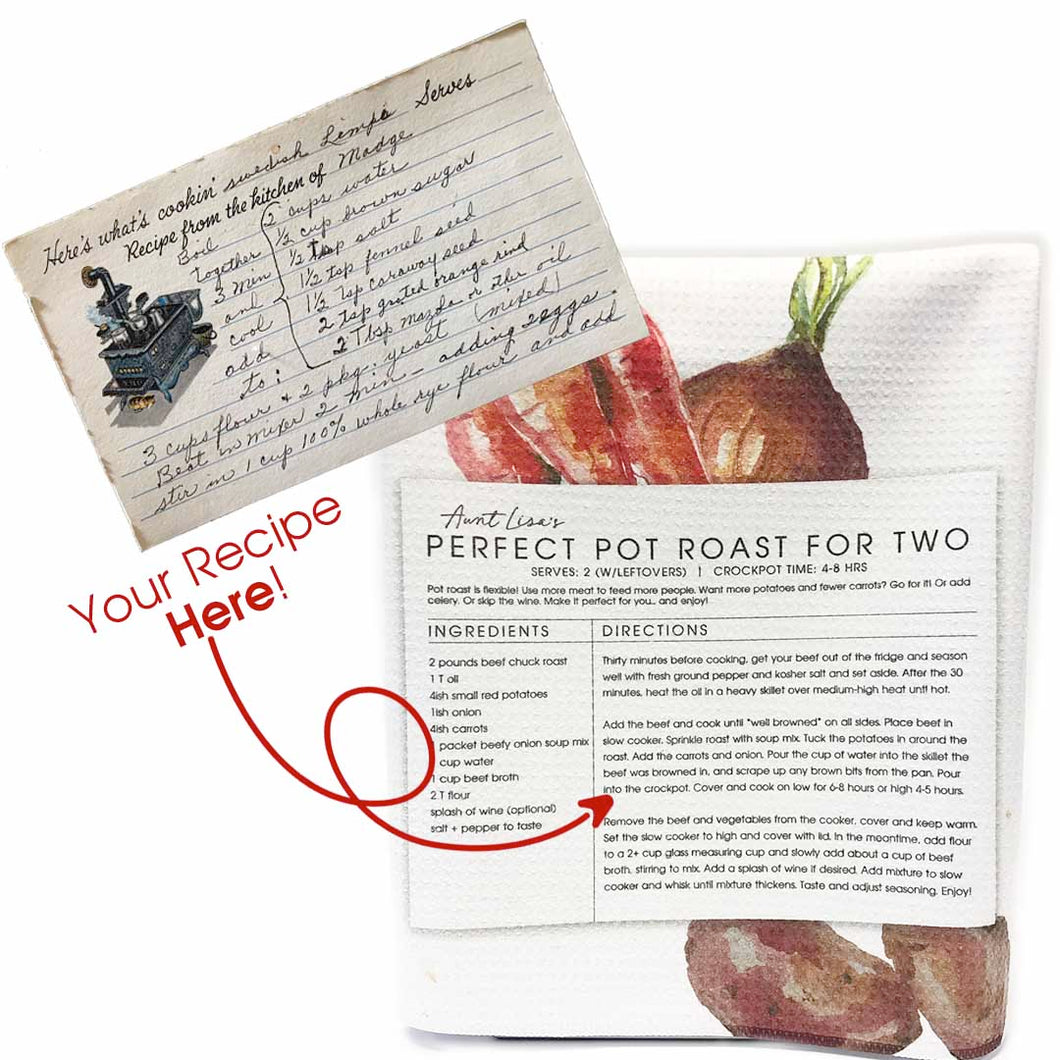 Here's what's cookin' swedish Limpa Serves
Recipe from the kitchen of Madge
Boil
Together
3 Min
and
cool
add
to:
2 cups water
½ cup brown sugar
½ Tsp salt
1½ tsp fennel seed
1½ Tsp caraway seed
2 Tsp grated orange rind
2 Tbsp mazola or othe oil
3 cups flour & 2 pkg. yeast (mixed)
Beat in mixer 2 min - adding 2 eggs.
stir in 1 cup 100% whole rye flour and add
Your Recipe
Here!
Aunt Lisa's
PERFECT POT ROAST FOR TWO
SERVES: 2 (W/LEFTOVERS) | CROCKPOT TIME: 4-8 HRS
Pot roast is flexible! Use more meat to feed more people. Want more potatoes and fewer carrots? Go for it! Or add
celery. Or skip the wine. Make it perfect for you... and enjoy!
INGREDIENTS
2 pounds beef chuck roast
1 T oil
4ish small red potatoes
1ish onion
4ish carrots
packet beefy onion soup mix
cup water
1 cup beef broth
2 T flour
splash of wine (optional)
salt + pepper to taste
DIRECTIONS
Thirty minutes before cooking, get your beef out of the fridge and season
well with fresh ground pepper and kosher salt and set aside. After the 30
minutes, heat the oil in a heavy skillet over medium-high heat until hot.
Add the beef and cook until "well browned" on all sides. Place beef in
slow cooker. Sprinkle roast with soup mix. Tuck the potatoes in around the
roast. Add the carrots and onion. Pour the cup of water into the skillet the
beef was browned in, and scrape up any brown bits from the pan. Pour
into the crockpot. Cover and cook on low for 6-8 hours or high 4-5 hours.
Remove the beef and vegetables from the cooker, cover and keep warm.
Set the slow cooker to high and cover with lid. In the meantime, add flour
to a 2+ cup glass measuring cup and slowly add about a cup of beef
broth, stirring to mix. Add a splash of wine if desired. Add mixture to slow
cooker and whisk until mixture thickens. Taste and adjust seasoning. Enjoy!